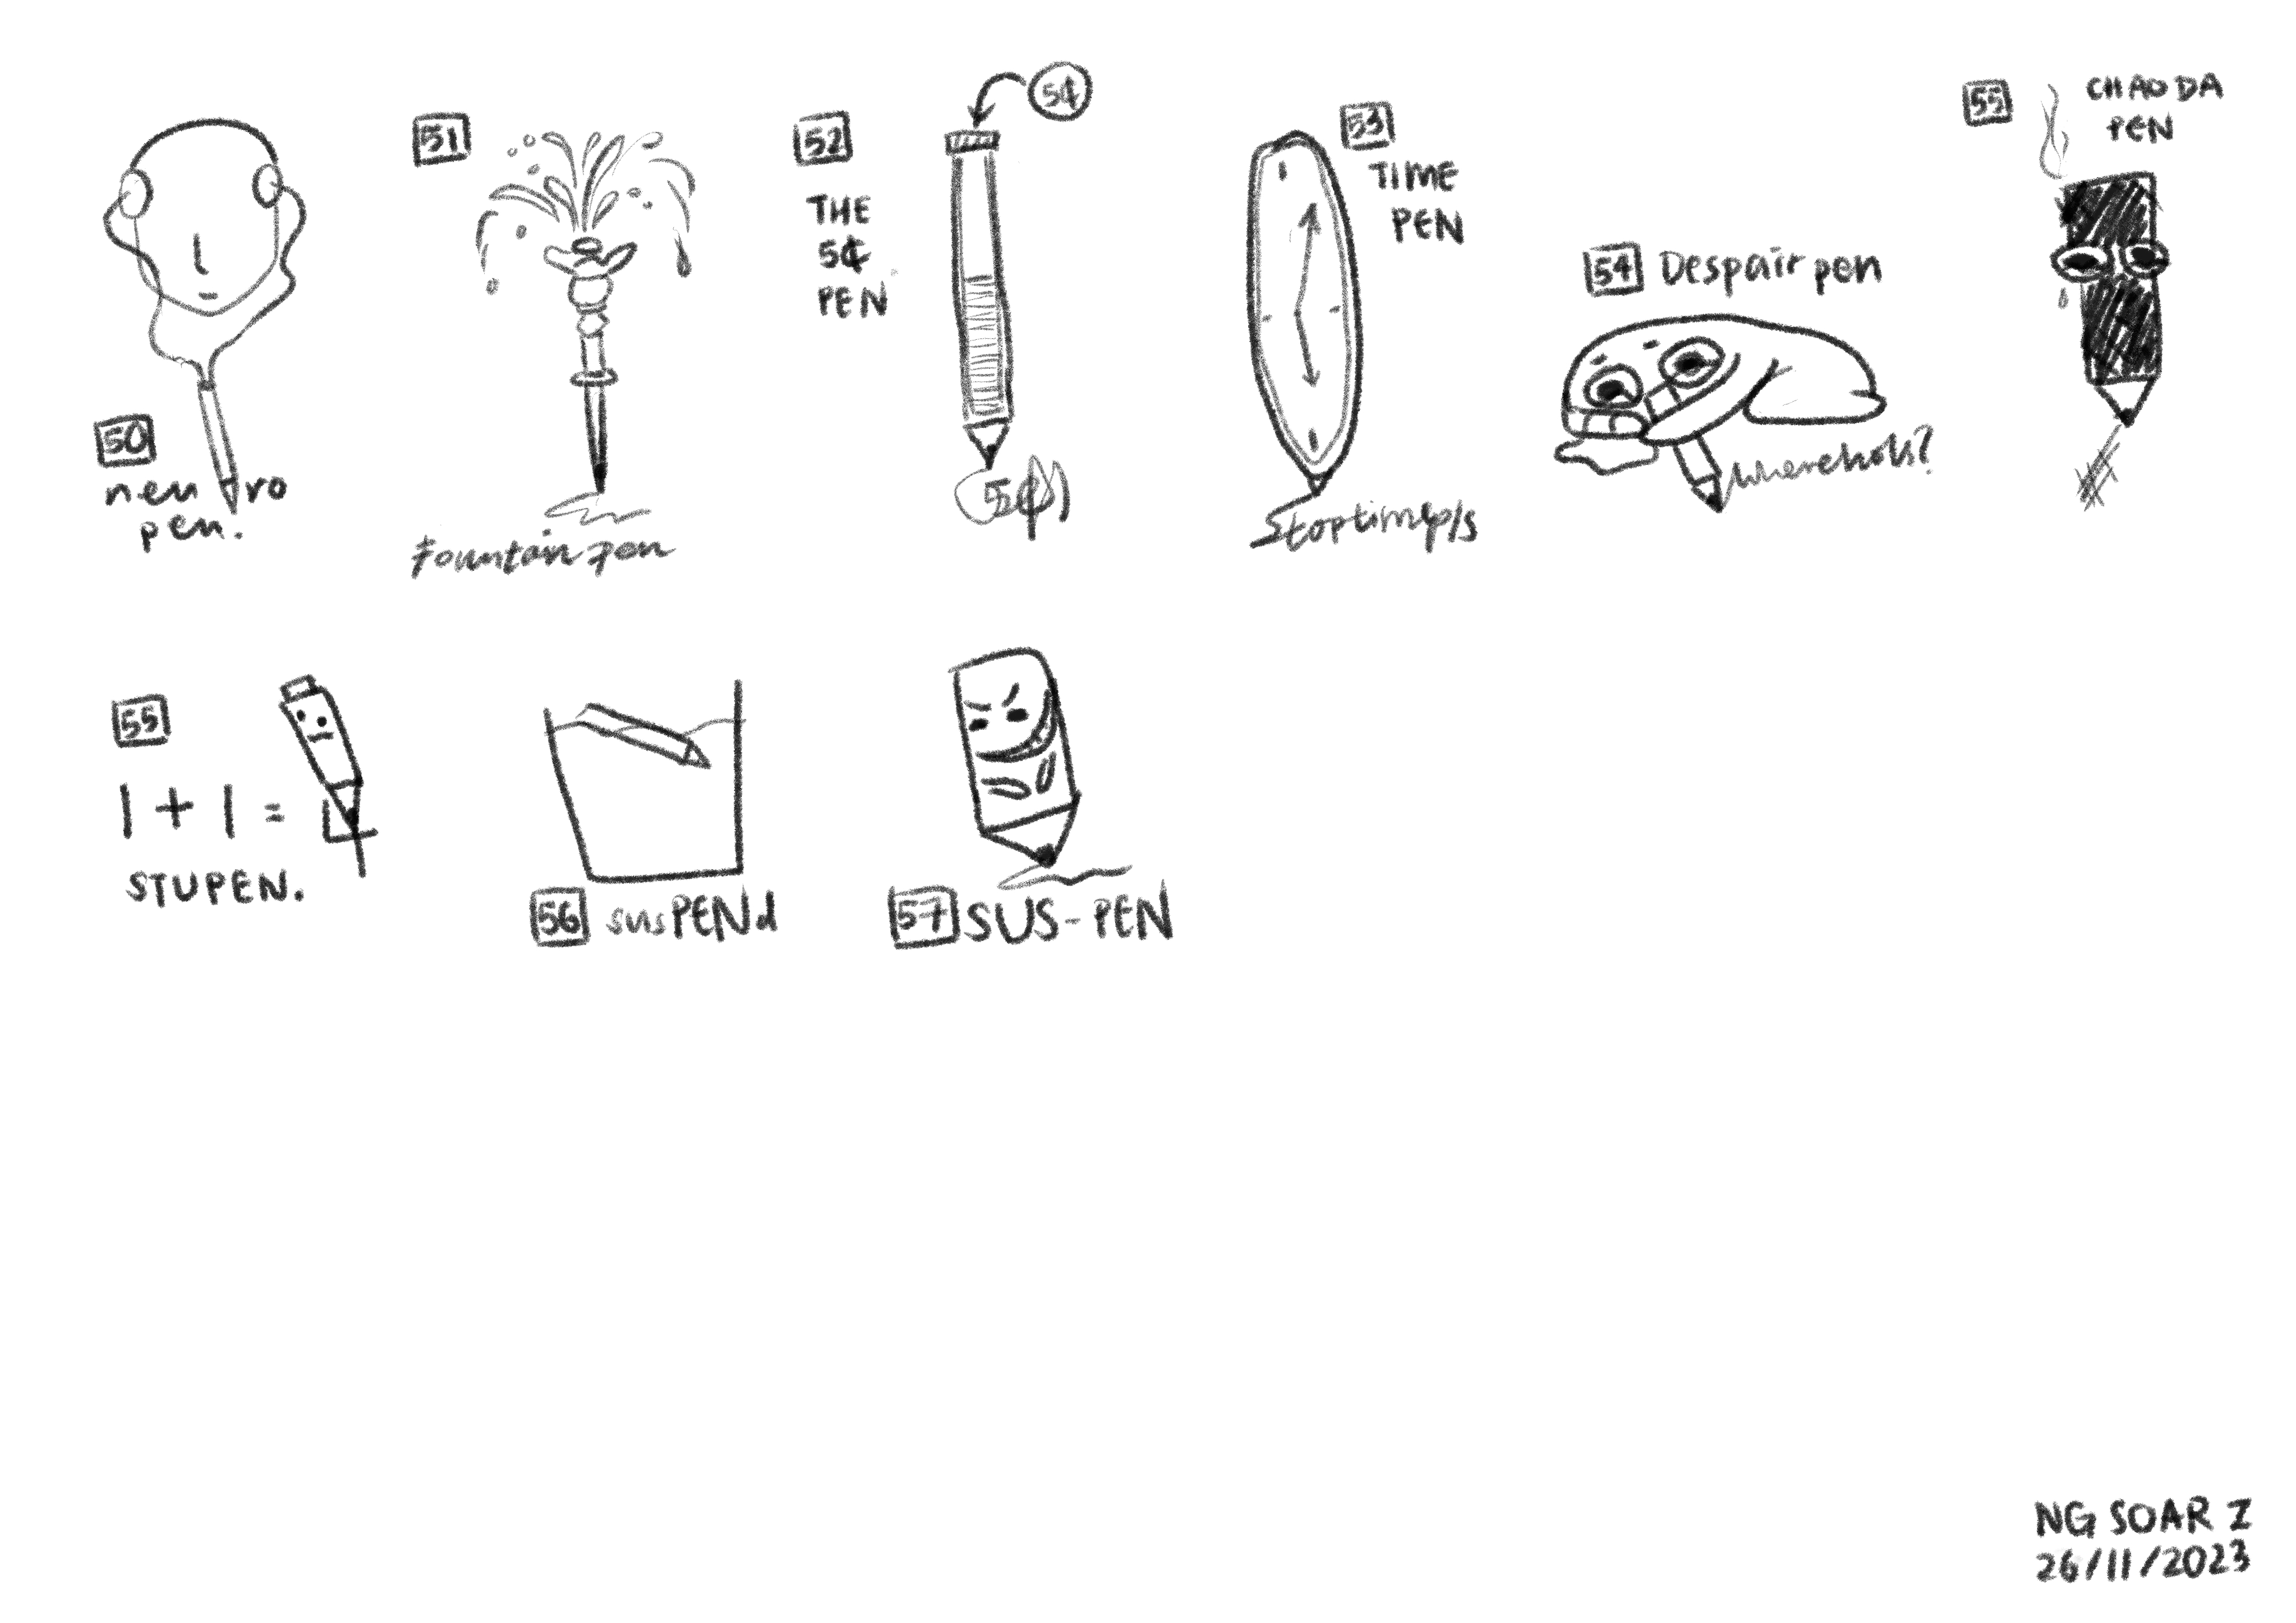 50
neu ro
pen.
51
Fountain pen
52
THE
5¢
PEN
5¢
5¢
53
TIME
PEN
Stop time p/s
54 Despair pen
55
CHAO DA
PEN
55
1 + 1 =
STUPEN.
56 susPENd
57 SUS-PEN
NG SOAR Z
26/11/2023